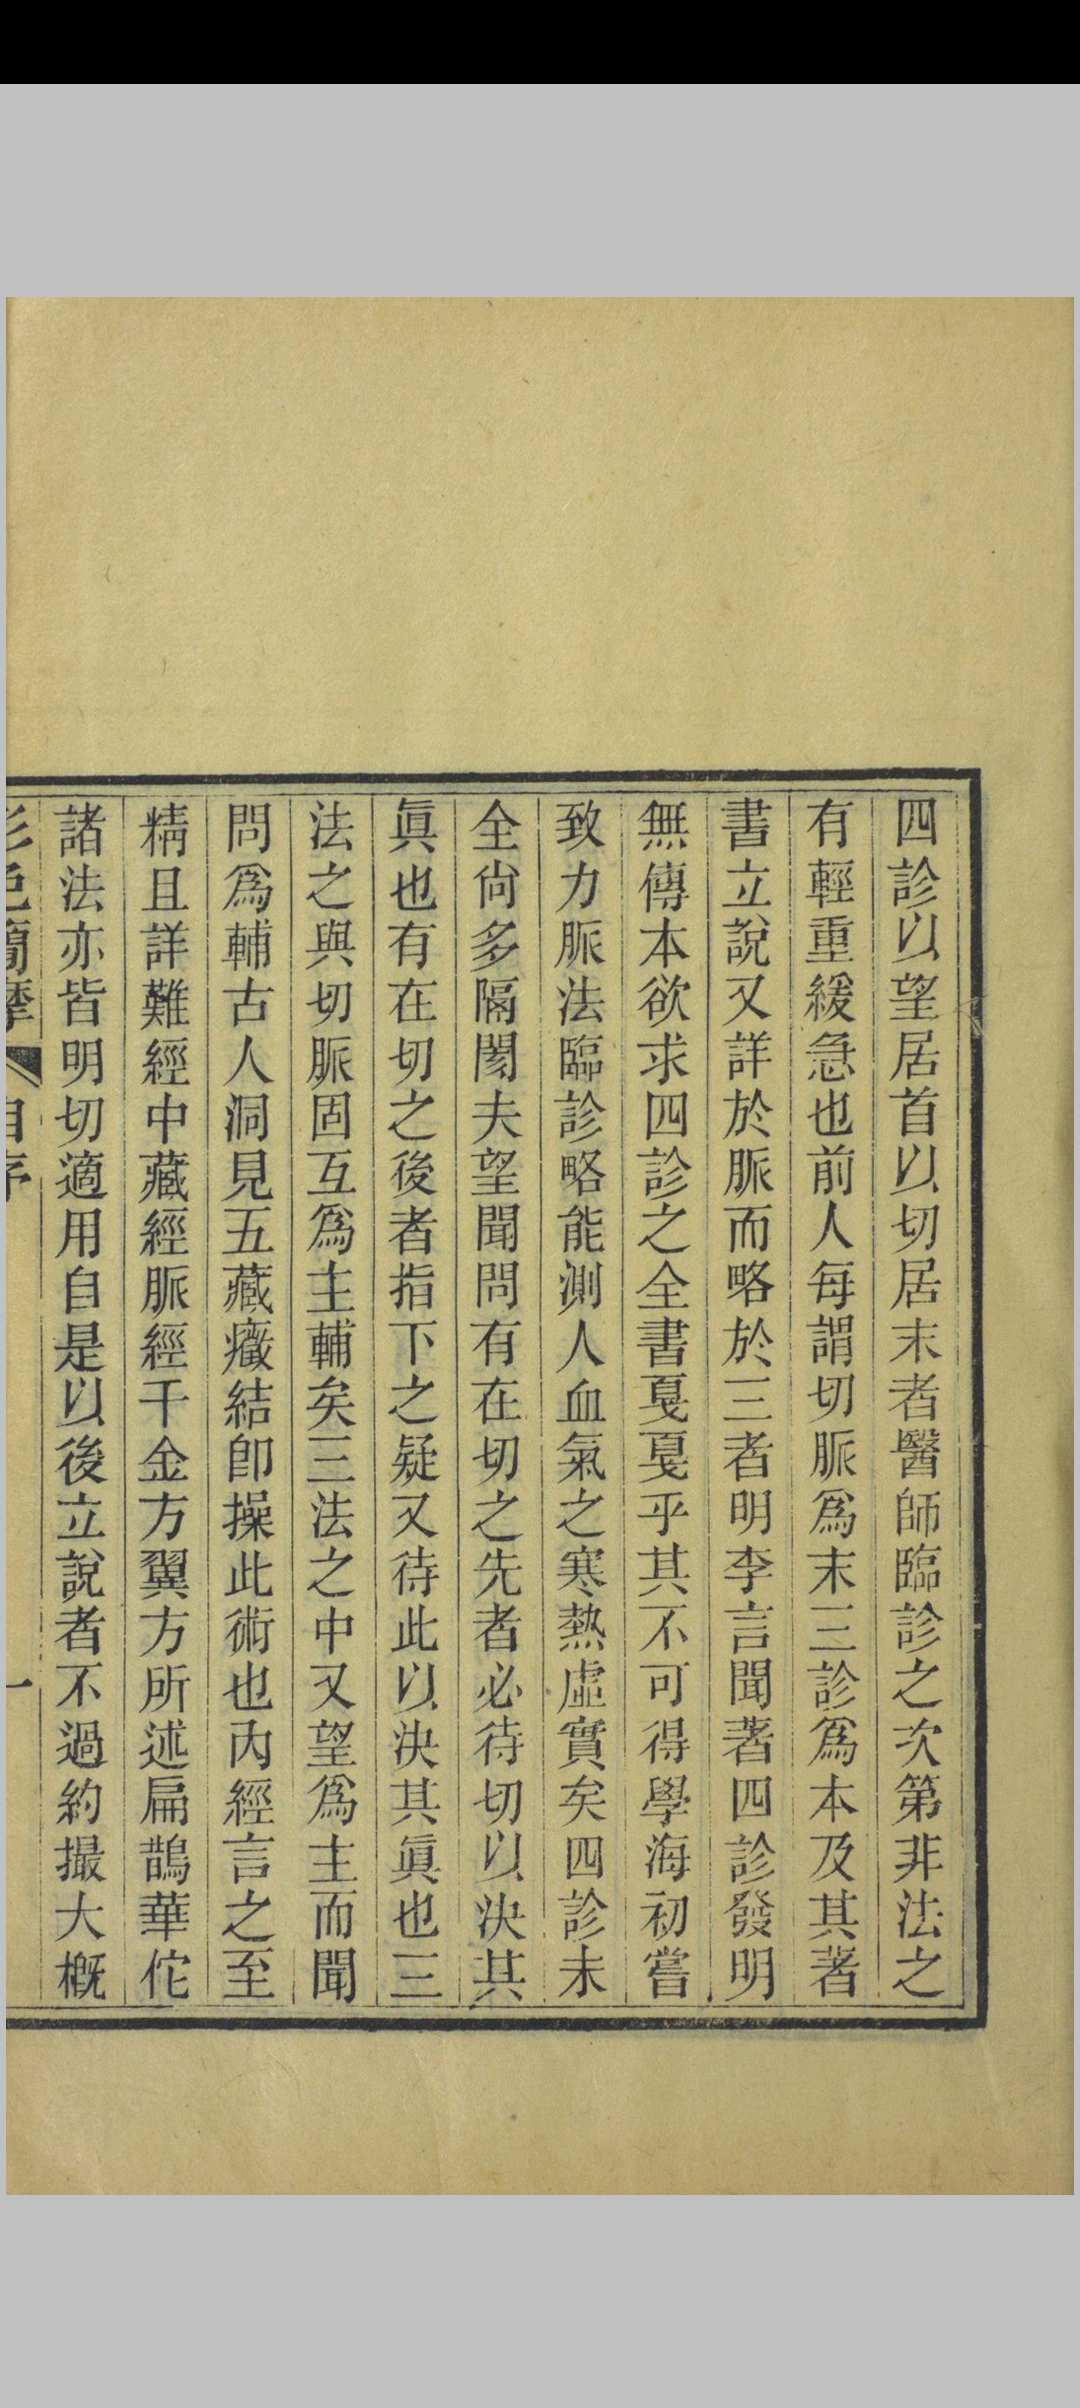 四診以望居首以切居末者醫師臨診之次第非法之
有輕重緩急也前人每謂切脈爲末三診爲本及其著
書立說又詳於脈而略於三者明李言聞著四診發明
無傳本欲求四診之全書戛戛乎其不可得學海初嘗
致力脈法臨診略能測人血氣之寒熱虛實矣四診未
全尙多隔閡夫望聞問有在切之先者必待切以決其
眞也有在切之後者指下之疑又待此以決其眞也三
法之與切脈固互爲主輔矣三法之中又望爲主而聞
問爲輔古人洞見五藏癥結卽操此術也內經言之至
精且詳難經中藏經脈經千金方翼方所述扁鵲華佗
諸法亦皆明切適用自是以後立說者不過約撮大槪
形色簡摩 自序 一